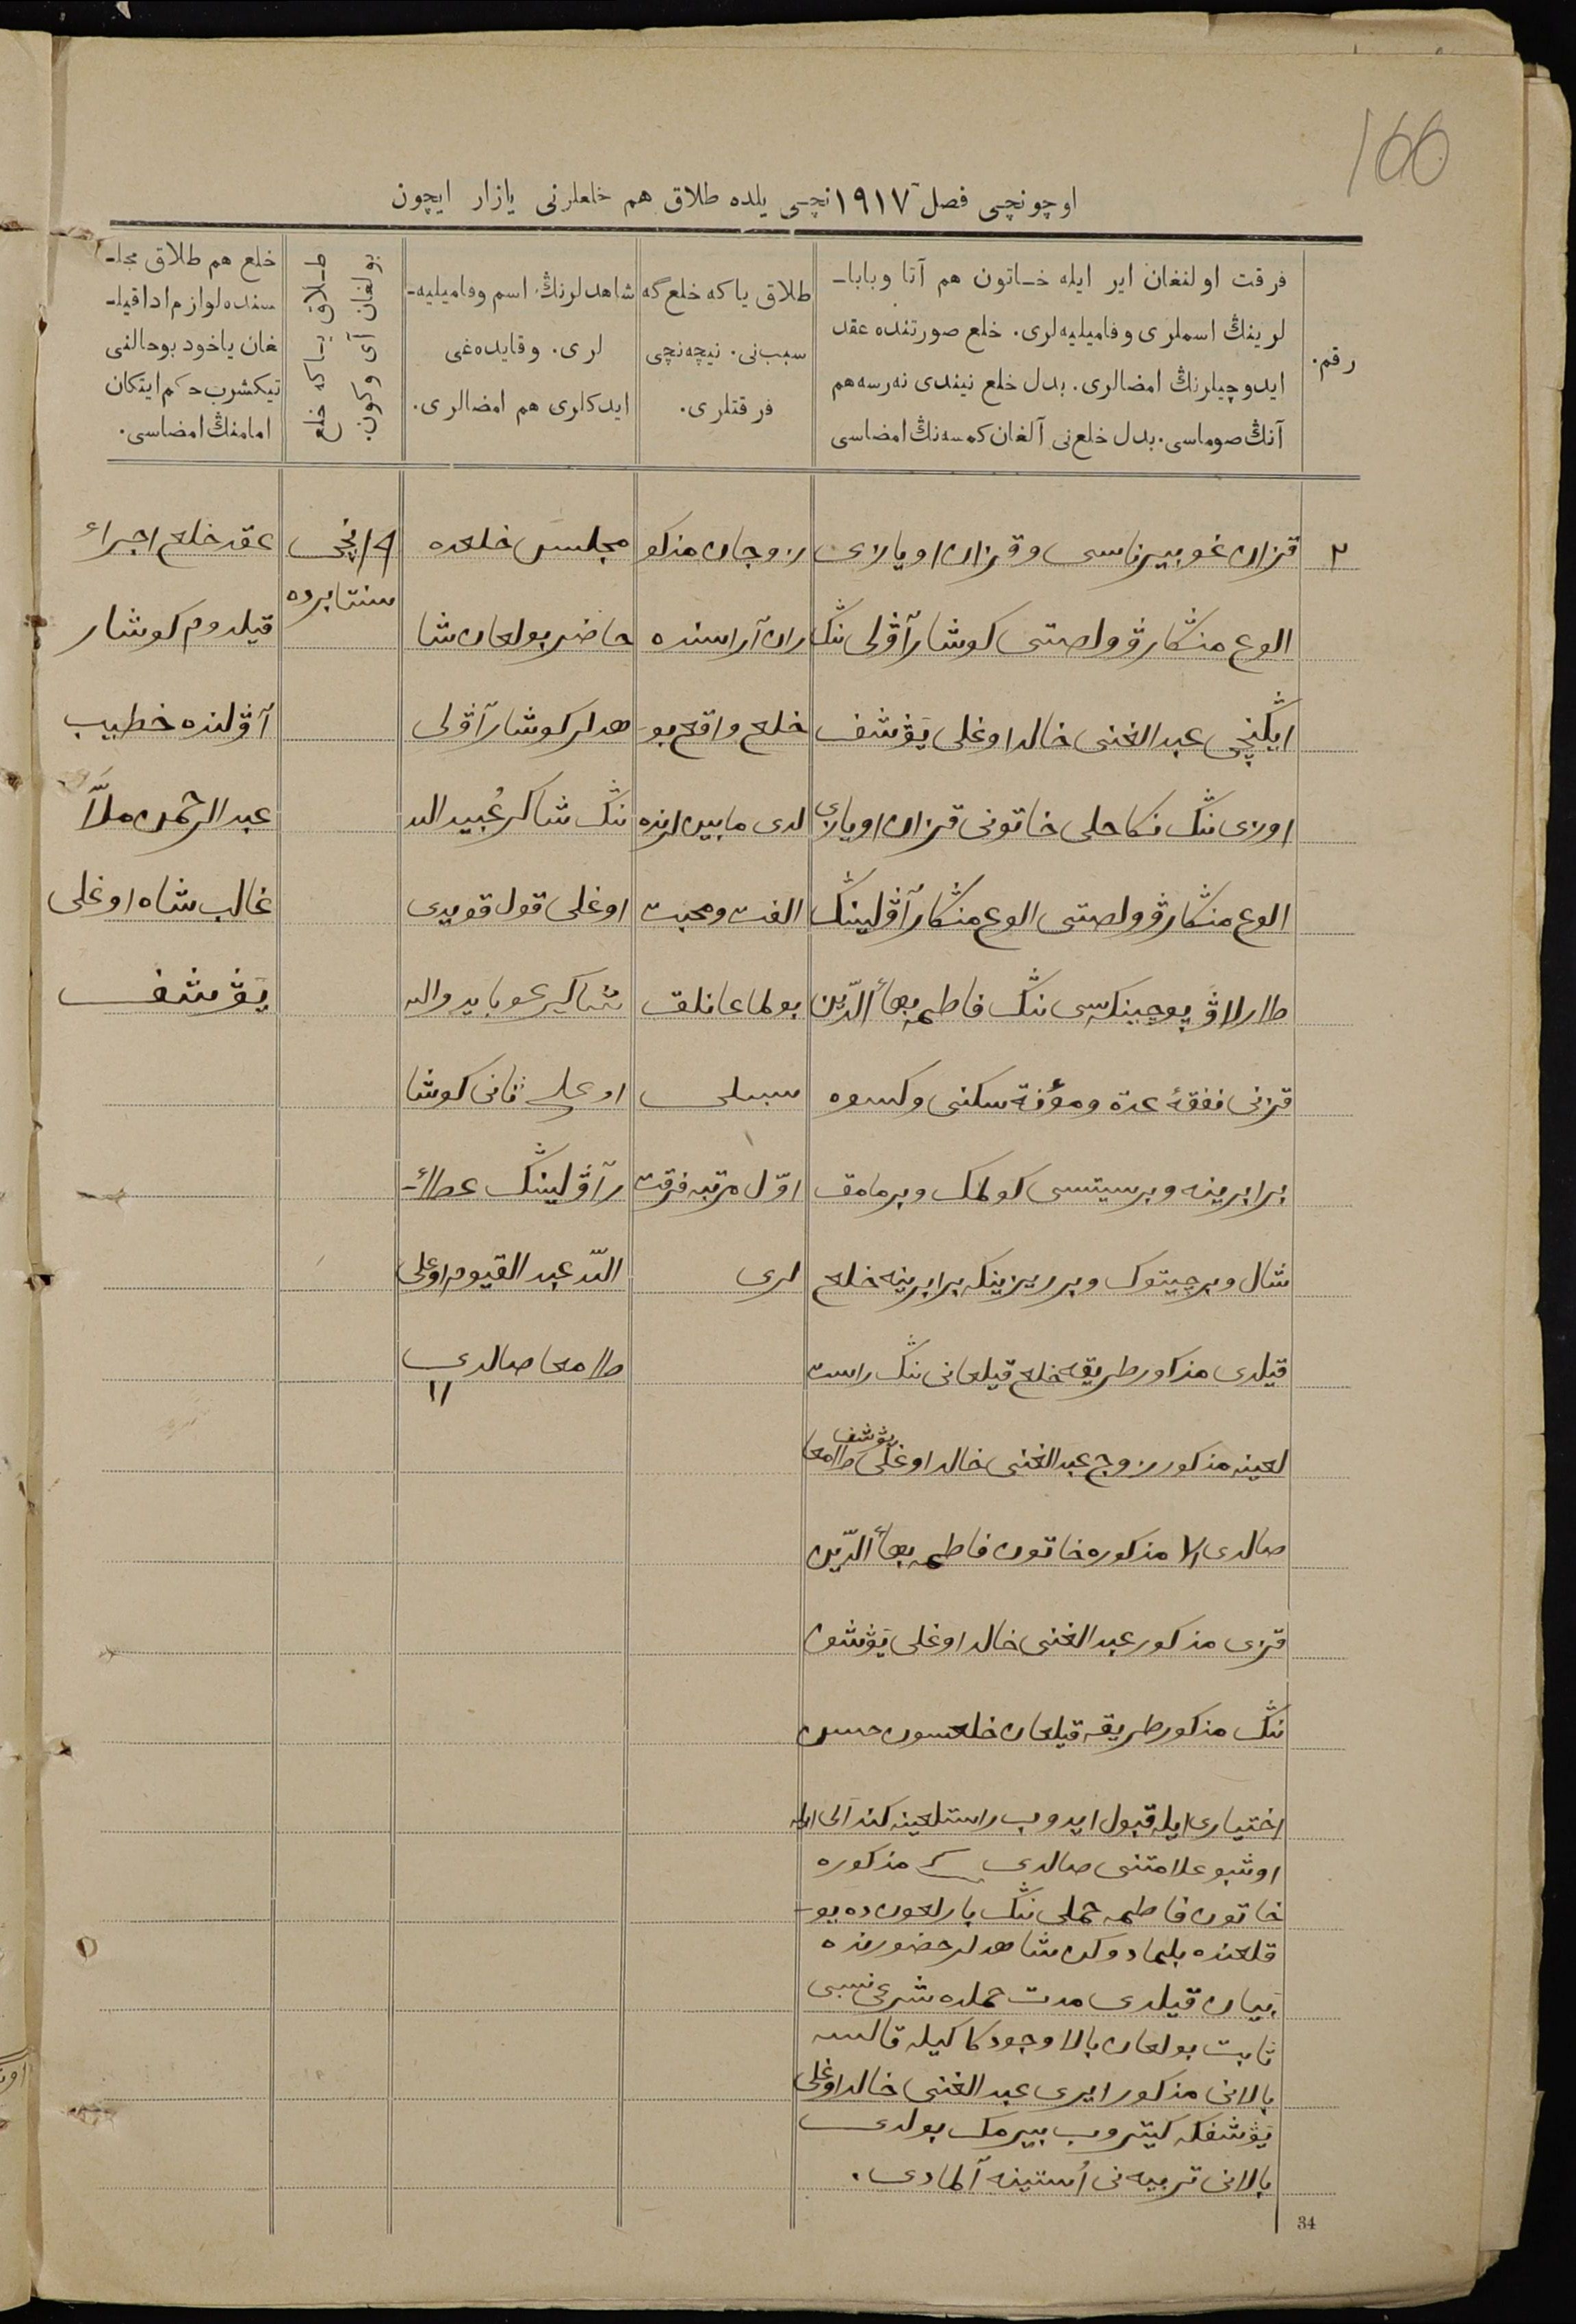 166
اوچونچی فصل ۱۹۱۷نچی یلده طلاق هم خلعلرنی یازار ایچون
رقم.
فرقت اولنغان ایر ایله خاتون هم آتا وبابا-
لرینڭ اسملری وفامیلیه‌لری. خلع صورتنده عقد
ایدوچیلرنڭ امضالری. بدل خلع نیندی نه‌رسه هم
آنڭ صوماسی. بدل خلع‌نی آلغان کمسه‌نڭ امضاسی
طلاق یاکه خلع گه
سبب‌نی. نیچه‌نچی
فرقتلری.
شاهدلرنڭ اسم وفامیلیه-
لری. وقایده‌غی
ایدکلری هم امضالری.
طلاق یاکه خلع
بولغان آی وکون.
خلع هم طلاق مجلـ-
سنده لوازم ادا قیلـ-
غان یاخود بوحالنی
تیکشرب حکم ایتکان
امامنڭ امضاسی.
۲
قزان غوبیرناسی وقزان اویازی
الوغ منڭار ۋولصتی کوشار آۋلی ننڭ
ایڭنچی عبد الغنی خالد اوغلی یۋشف
اوزی ننڭ نکاحلی خاتونی قزان اویازی
الوغ منڭار ۋولصتی الوغ منڭار آۋلینڭ
فاطمه بهاء الدّین
قزنی نفقهٔ عدة ومؤنة سکنی وکسوه
برابرینه وبر سیتسی کولمک وبر مامق
شال وبر چیتوک وبر ریزینکه برابرینه خلع
قیلدی مذکور طریقه خلع قیلغانی ننڭ راست
لغینه مذکور زوج عبد الغنی خالد اوغلی یۋشف طامغا
صالدی مذکوره خاتون فاطمه بهاء الدّین
قزی مذکور عبد الغنی خالد اوغلی یۋشف
ننڭ مذکور طریقه قیلغان خلعسون حسن
اختیاری ایله قبول ایدوب راستلغینه کند الی ایله
اوشبو علامتنی صالدی مذکوره
خاتون فاطمه حملی ننڭ بارلغون ده یو-
قلغنده بلمادوکن شاهدلر حضورنده
بیان قیلدی مدت حملده شرعی نسبی
ثابت بولغان بالا وجودکا کیله قالسه
بالانی مذکور ایری عبد الغنی خالد اوغلی
یۋشفکه کیتروب بیرمک بولدی
بالانی تربیه نی اُستینه آلمادی.
زوجان مذکو
ران آراسنده
خلع واقع بو-
لدی مابینلرنده
الفت ومحبت
بولماغانلق
سببلی
اوّل مرتبه فرقت
لری
مجلس خلعده
حاضر بولغان شا
هدلر کوشار آۋلی
ننڭ شاکر عُبید الله
اوغلی قول قویدی
شاکیر
اوغلی ثانی کوشا
ر آۋلینڭ عطاء-
الله عبد القیوم اوغلی
طامغا صالدی
۱۴نچی
سنتابرده
عقد خلع اجراء
قیلدوم کوشار
آۋلنده خطیب
عبد الرحمن ملّا
غالب شاه اوغلی
یۋشف
34